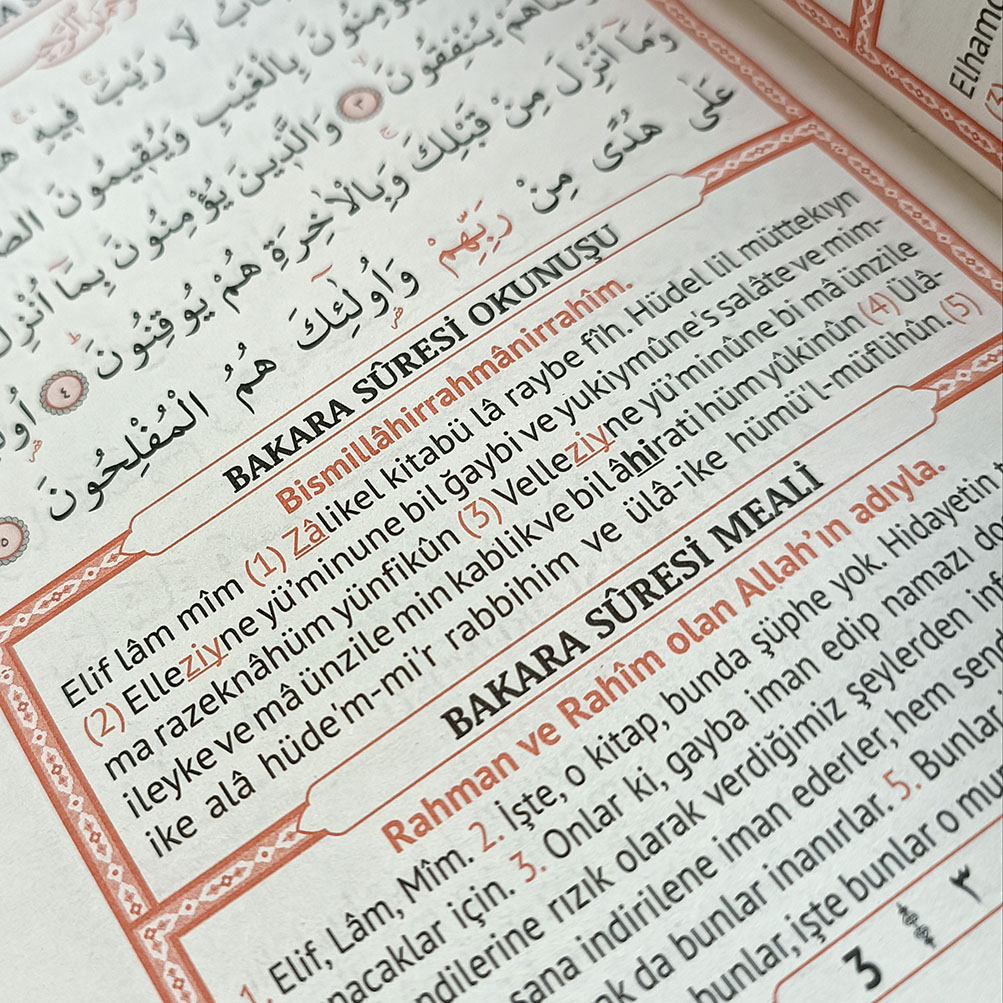 لَا رَيْبَ فِيهِ
بِالْغَيْبِ وَيُقِيمُونَ
يُنْفِقُونَ ٣ وَالَّذِينَ يُؤْمِنُونَ بِمَا أُنْزِلَ
وَمَا أُنْزِلَ مِنْ قَبْلِكَ وَبِالْاٰخِرَةِ هُمْ يُوقِنُونَ ٤
عَلٰى هُدًى مِنْ رَبِّهِمْ وَأُولٰئِكَ هُمُ الْمُفْلِحُونَ ٥
BAKARA SÛRESİ OKUNUŞU
Bismillâhirrahmânirrahîm.
Elif lâm mîm (1) Zâlikel kitabü lâ raybe fîh. Hüdel lil müttekıyn
(2) Elleziyne yü'minune bil ğaybi ve yukiymûne's salâte ve mim-
ma razeknâhüm yünfikûn (3) Velleziyne yü'minûne bi mâ ünzile
ileyke ve mâ ünzile min kablik ve bil âhirati hüm yûkinûn (4) Ülâ-
ike alâ hüde'm-mi'r rabbihim ve ülâ-ike hümü'l-müflihûn. (5)
BAKARA SÛRESİ MEALİ
Rahman ve Rahîm olan Allah'ın adıyla.
1. Elif, Lâm, Mîm. 2. İşte, o kitap, bunda şüphe yok. Hidayetin
acaklar için. 3. Onlar ki, gayba iman edip namazı
ndilerine rızık olarak verdiğimiz şeylerden
sana indirilene iman ederler, hem
k da bunlar inanırlar. 5. Bunlar
bunlar, işte bunlar o
3 ٣
Elham